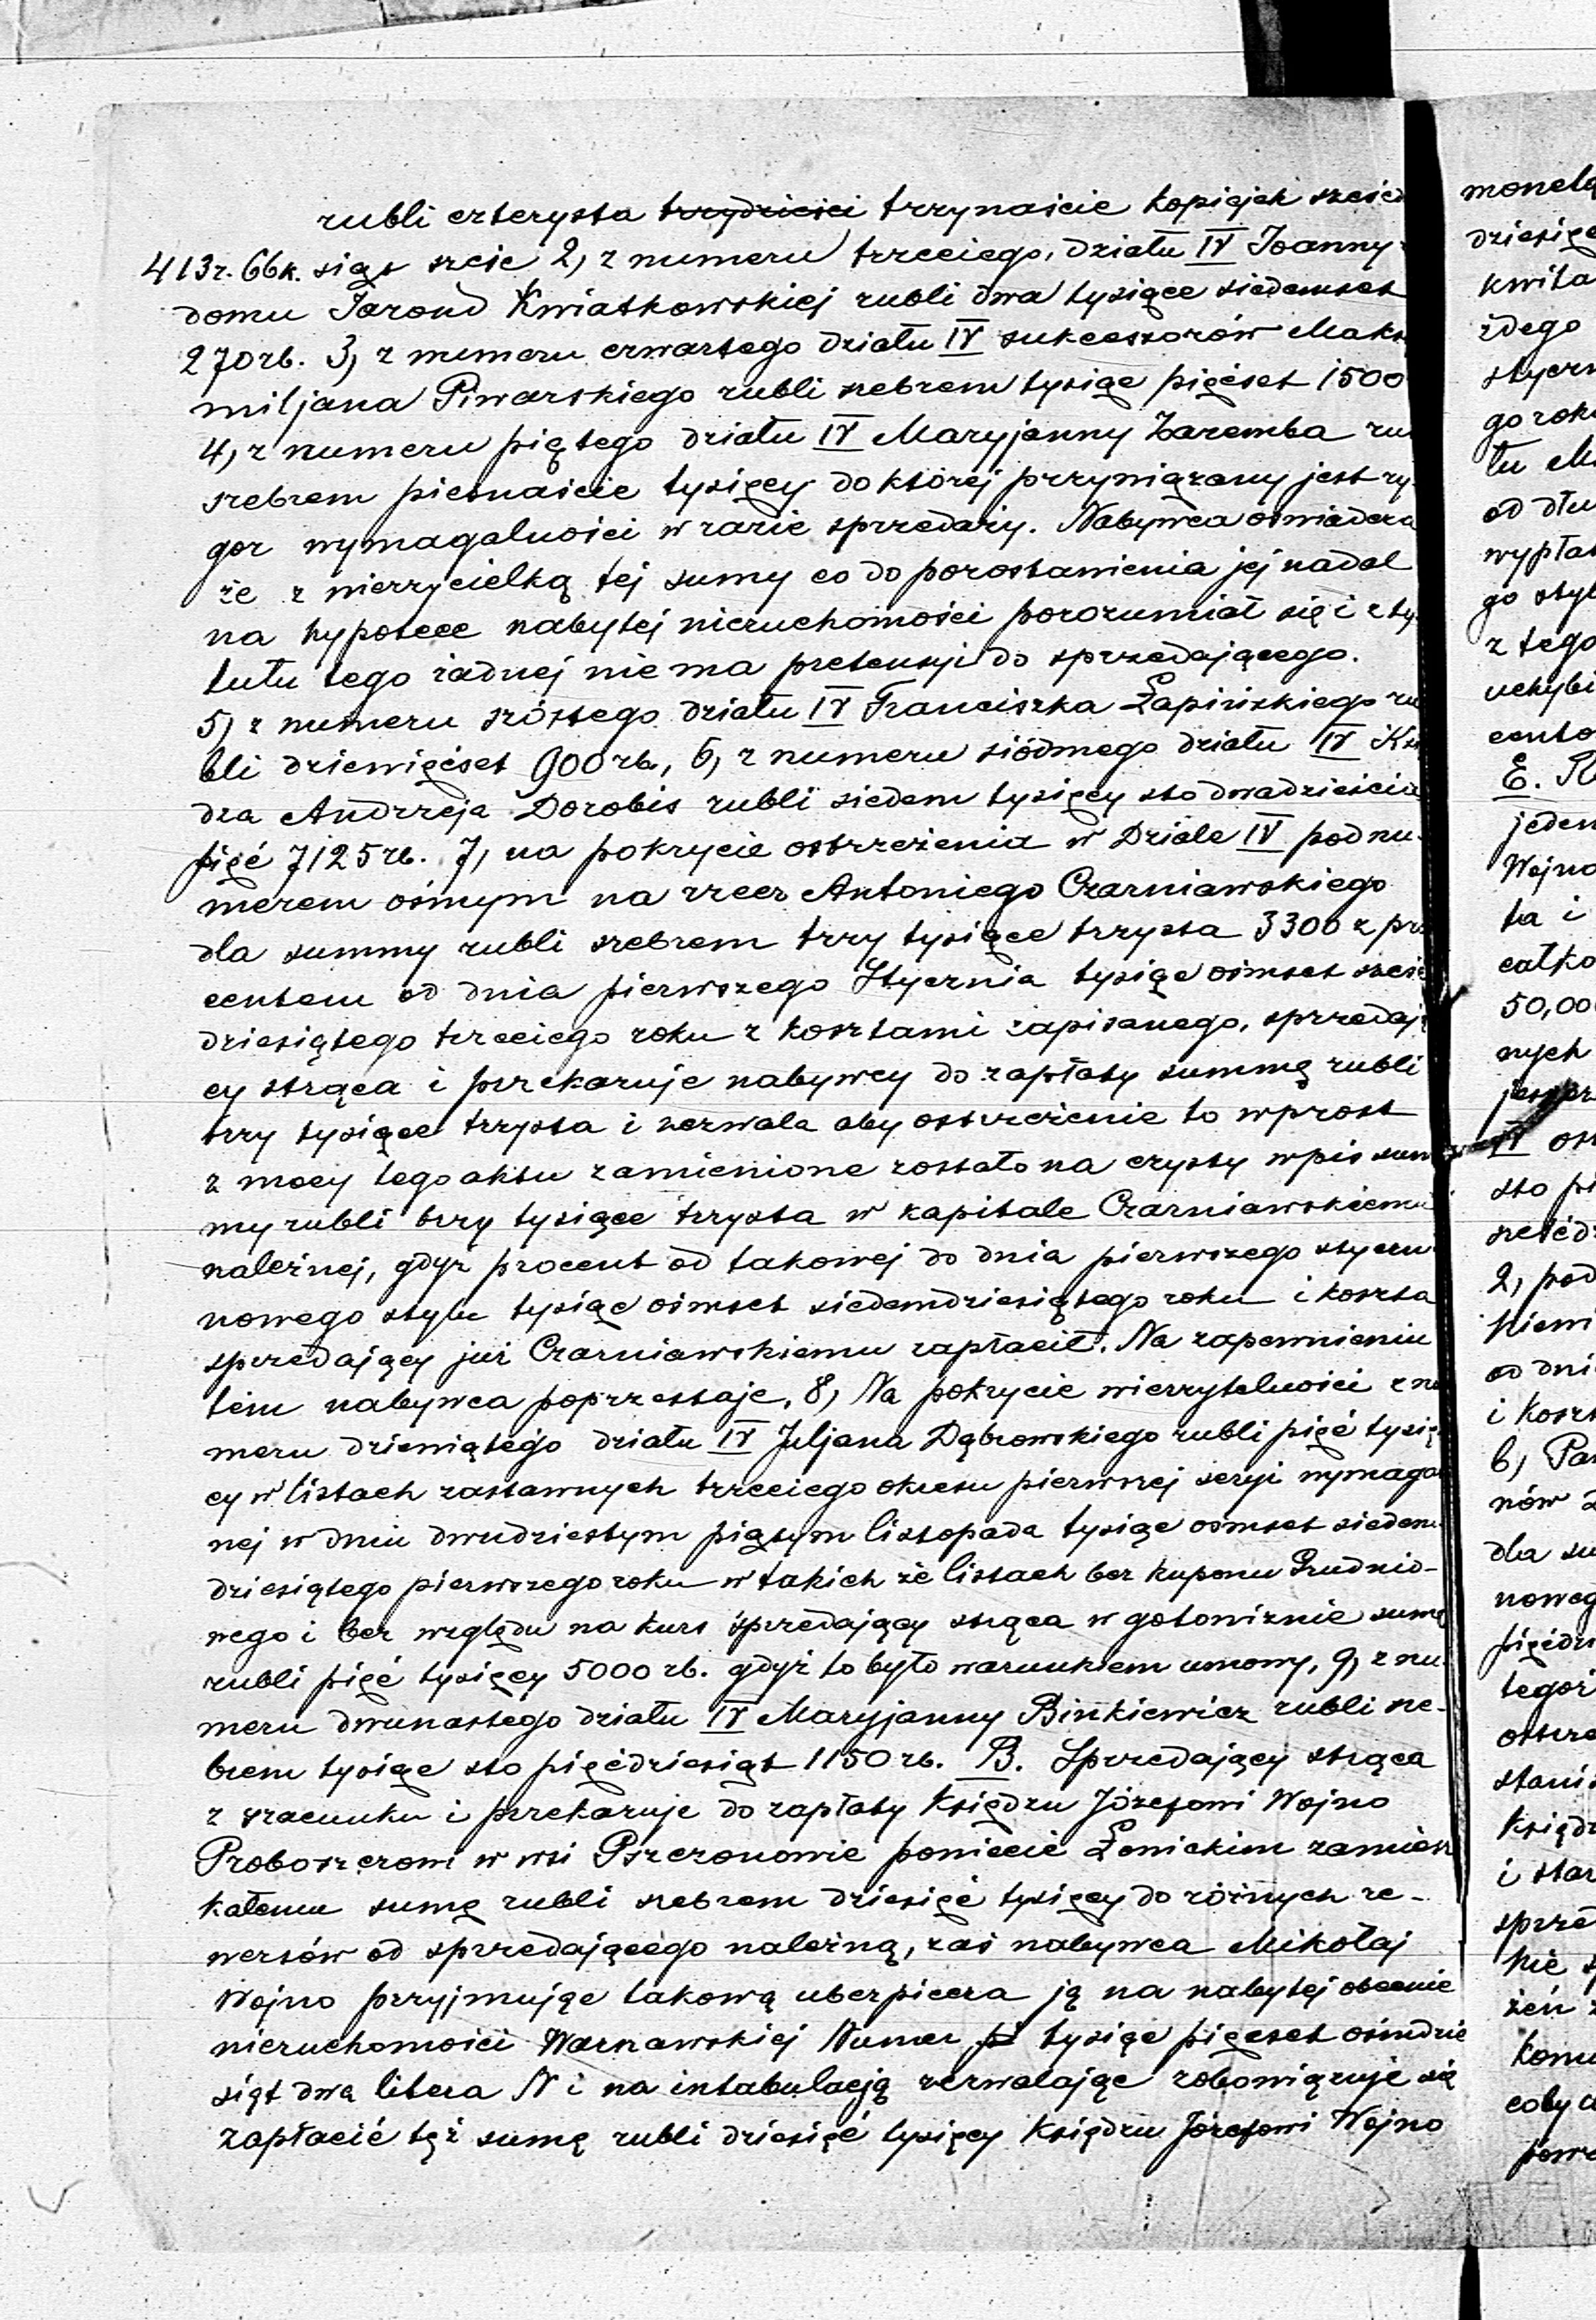 rubli czterysta trzydzieści trzynaście kopiejek sześćd
413r. 66k. siąt sześć 2, z numeru trzeciego, działu IV Joanny z
domu Jarond Kwiatkowskiej rubli dwa tysiące siedemset
270rb. 3, z numeru czwartego działu IV sukcessorów Maksy
miljana Piwarskiego rubli srebrem tysiąc pięćset 1500
4, z numeru piątego działu IV Maryjanny Zaremba ru
srebrem piętnaście tysięcy do której przywiązany jest ry
gor wymagalności w razie sprzedaży. Nabywca oświadcza
że z wierzycielką tej sumy co do pozostawienia jej nadal
na hypotece nabytej nieruchomości porozumiał się i z ty
tułu tego żadnej nie ma pretensyi do sprzedającego.
5, z numeru szóstego działu IV Franciszka Łapińskiego ru
bli dziewięćset 900 rb., 6, z numeru siódmego działu IV Xię
dza Andrzeja Dorobis rubli siedem tysięcy sto dwadzieścia
pięć 7125 rb. 7, na pokrycie ostrzeżenia w Dziale IV pod nu-
merem ósmym na rzecz Antoniego Czarniawskiego
dla summy rubli srebrem trzy tysiące trzysta 3300 z pro
centem od dnia pierwszego Stycznia tysiąc ośmset sześć
dziesiątego trzeciego roku z kosztami zapisanego, sprzedają
cy strąca i przekazuje nabywcy do zapłaty summę rubli
trzy tysiące trzysta i zezwala aby ostrzeżenie to wprost
z mocy tego aktu zamienione zostało na czysty wpis sum
my rubli trzy tysiące trzysta w kapitale Czarniawskiemu
należnej, gdyż procent od takowej do dnia pierwszego styczni
nowego stylu tysiąc ośmset siedemdziesiątego roku i koszta
sprzedający już Czarniawskiemu zapłacił. Na zapewnieniu
tem nabywca poprzestaje. 8, Na pokrycie wierzytelności z nu
meru dziewiątego działu IV Juljana Dąbrowskiego rubli pięć tysię
cy w listach zastawnych trzeciego okresu pierwszej seryi wymagal
nej w dniu dwudziestym piątym listopada tysiąc ośmset siedem
dziesiątego pierwszego roku w takich że listach bez kuponu Grudnio-
wego i bez względu na kurs sprzedający strąca w gotowiznie sumę
rubli pięć tysięcy 5000 rb. gdyż to było warunkiem umowy, 9, z nu-
meru dwunastego działu IV Maryjanny Binkiewicz rubli sre-
brem tysiąc sto pięćdziesiąt 1150 rb. B. Sprzedający strąca
z szacunku i przekazuje do zapłaty Księdzu Józefowi Wojno
Proboszczowi w wsi Pszczonowie powiecie Łowickim zamiesz
kałemu sumę rubli srebrem dziesięć tysięcy do różnych re-
wersów od sprzedającego należną, zaś nabywca Mikołaj
Wojno przyjmując takową ubezpiecza ją na nabytej obecnie
nieruchomości Warszawskiej Numer pi tysiąc pięćset ośmdzie
siąt dwa litera N i na intabulacją zezwalając zobowiązuje się
zapłacić tęż sumę rubli dziesięć tysięcy Księdzu Józefowi Wojno
monetą
dziesięć
kwita
żdego
styczn
go roku
tu M
od dłu
wypłat
go styl
z tego
uchybi
cento
E.
jeden
Wojno
ta i
całko
50,000
nych
IV ost
sto pi
sześćdz
2, pod
kiemi
od dnia
i koszt
6, Pan
nów
dla su
nowego
pięćdz
tegoż
ostrze
stanis
Księdz
i star
sprzed
nie
żeń
komu
coby
powr